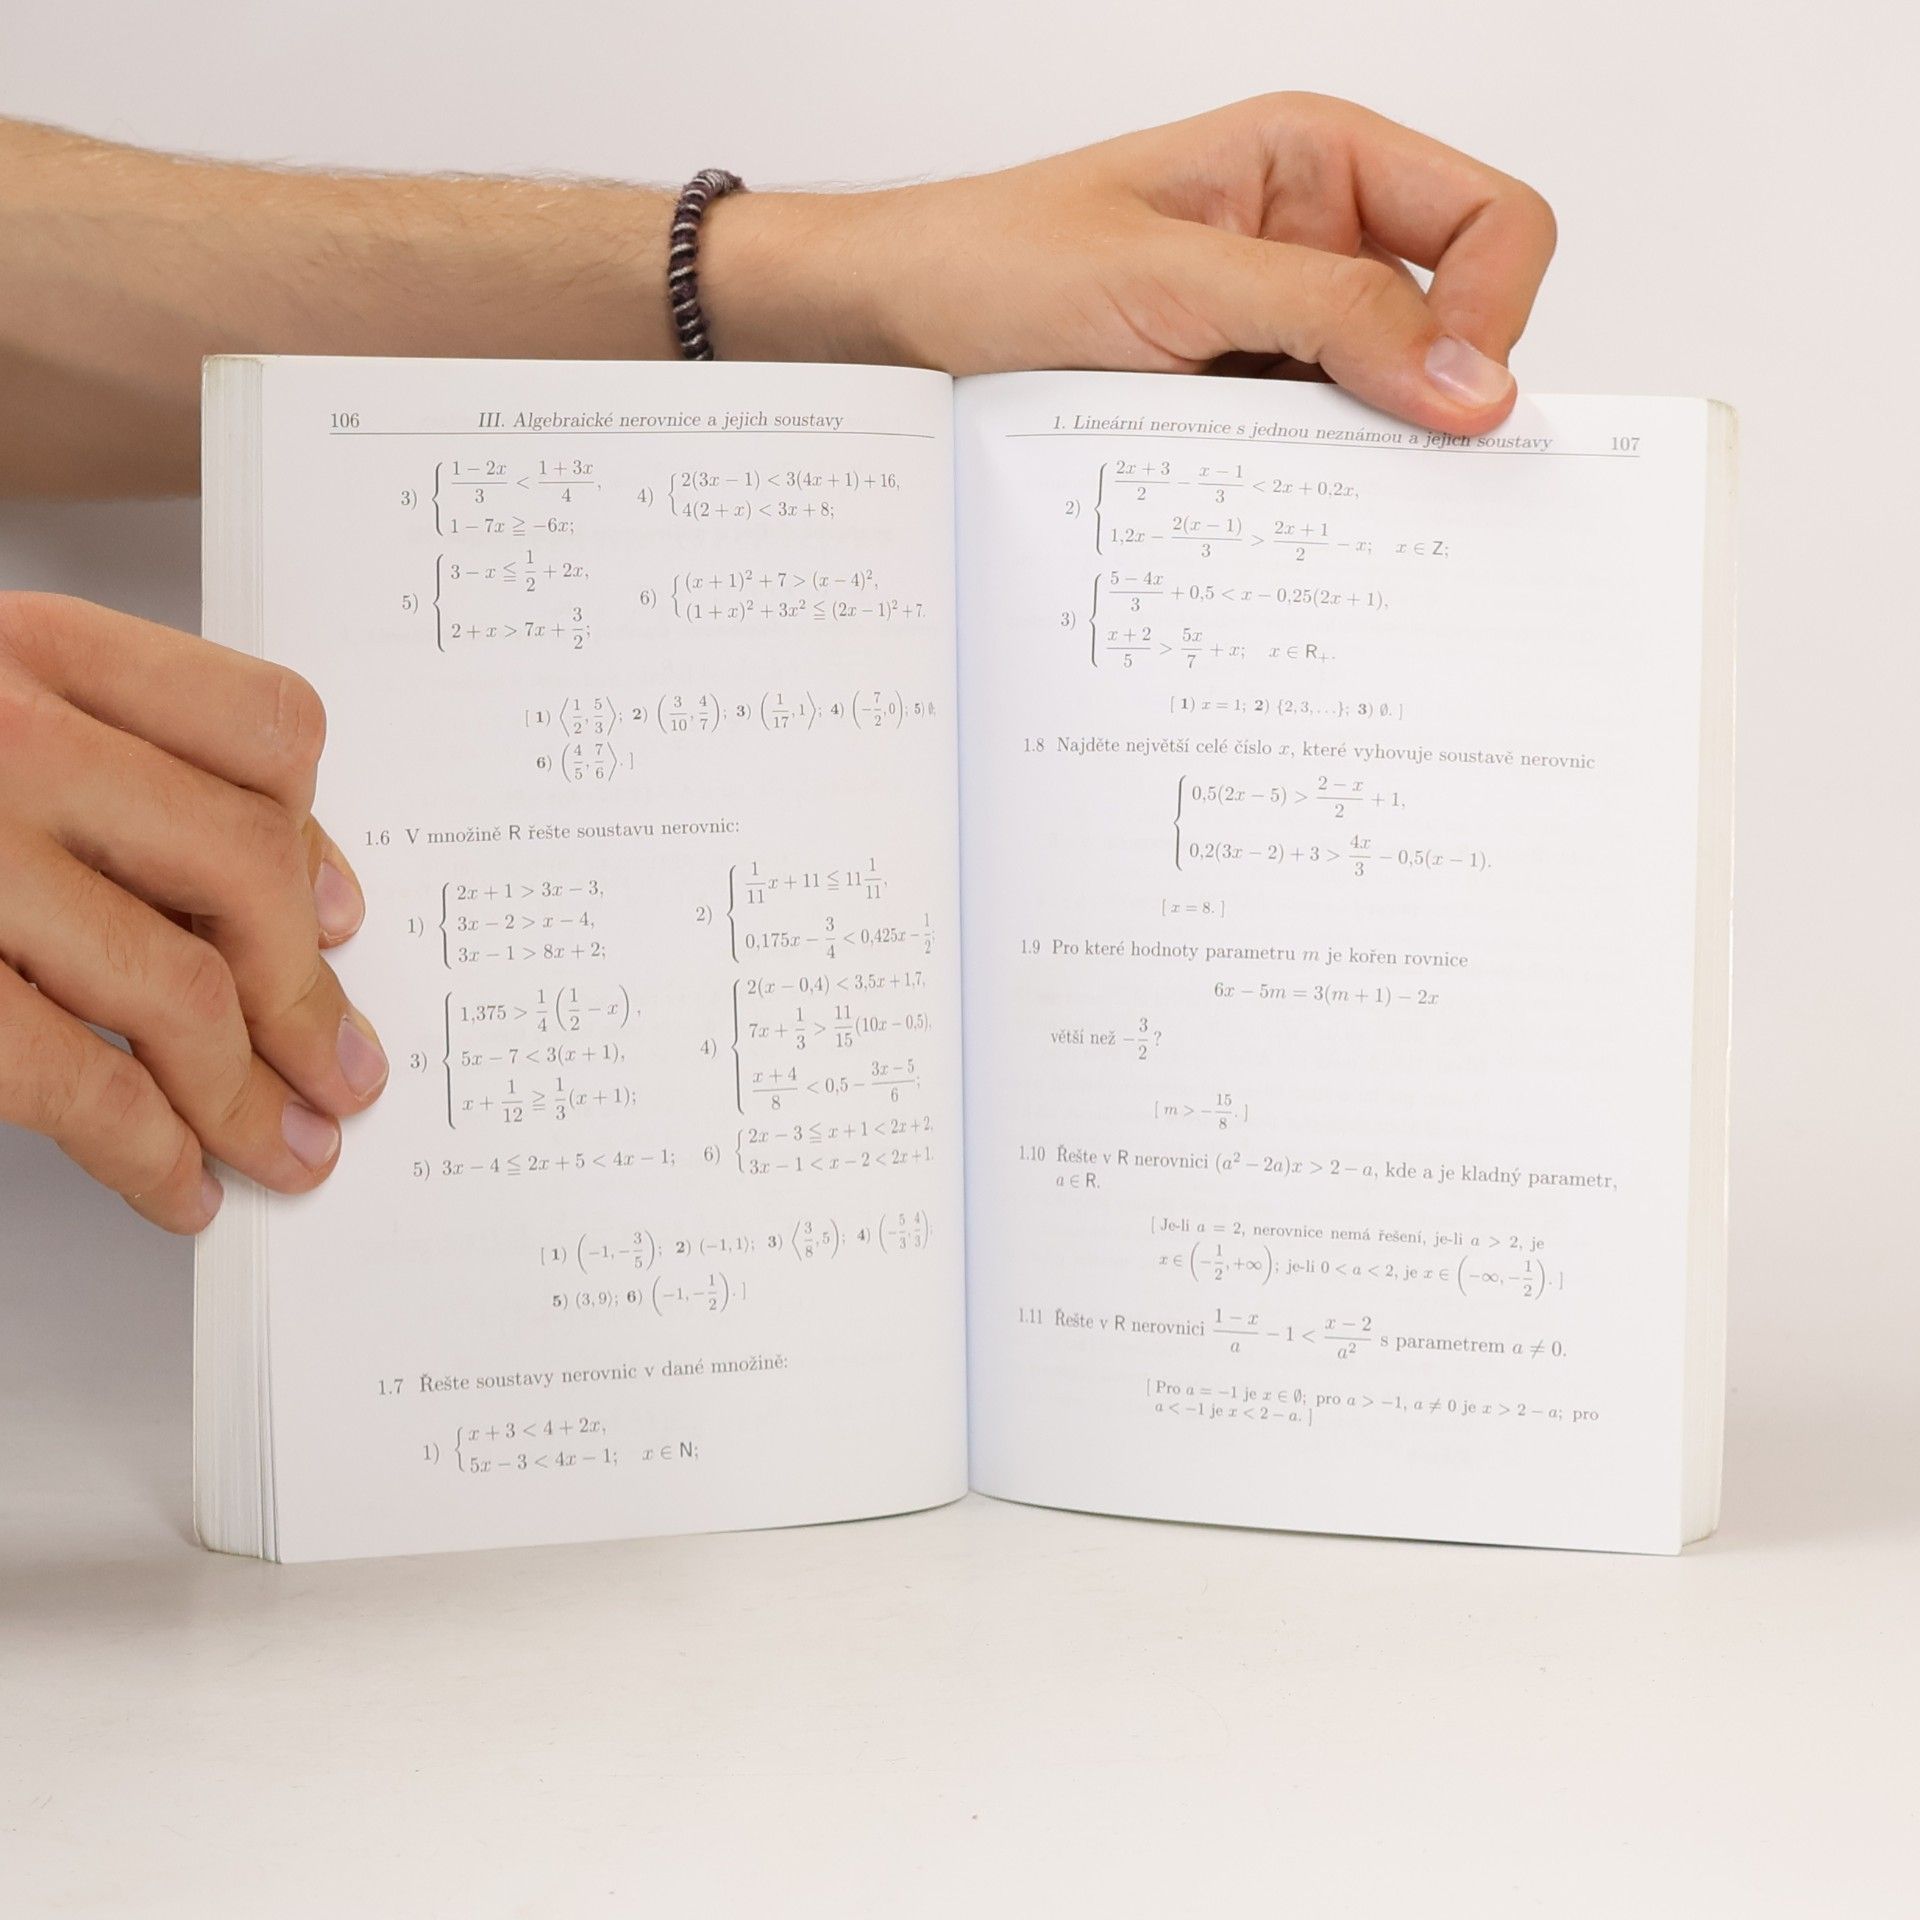 106 III. Algebraické nerovnice a jejich soustavy
3) { (1 − 2x)/3 < (1 + 3x)/4,
1 − 7x ≧ −6x;
4) { 2(3x − 1) < 3(4x + 1) + 16,
4(2 + x) < 3x + 8;
5) { 3 − x ≦ 1/2 + 2x,
2 + x > 7x + 3/2;
6) { (x + 1)² + 7 > (x − 4)²,
(1 + x)² + 3x² ≦ (2x − 1)² + 7.
[ 1) ⟨1/2, 5/3⟩; 2) (3/10, 4/7); 3) (1/17, 1⟩; 4) (−7/2, 0); 5) ∅;
6) (4/5, 7/6⟩. ]
1.6 V množině R řešte soustavu nerovnic:
1) { 2x + 1 > 3x − 3,
3x − 2 > x − 4,
3x − 1 > 8x + 2;
2) { 1/11 x + 11 ≦ 11 1/11,
0,175x − 3/4 < 0,425x − 1/2;
3) { 1,375 > 1/4 (1/2 − x),
5x − 7 < 3(x + 1),
x + 1/12 ≧ 1/3 (x + 1);
4) { 2(x − 0,4) < 3,5x + 1,7,
7x + 1/3 > 11/15 (10x − 0,5),
(x + 4)/8 < 0,5 − (3x − 5)/6;
5) 3x − 4 ≦ 2x + 5 < 4x − 1;
6) { 2x − 3 ≦ x + 1 < 2x + 2,
3x − 1 < x − 2 < 2x + 1.
[ 1) (−1, −3/5); 2) (−1, 1⟩; 3) ⟨3/8, 5); 4) (−5/3, 4/3);
5) (3, 9⟩; 6) (−1, −1/2). ]
1.7 Řešte soustavy nerovnic v dané množině:
1) { x + 3 < 4 + 2x,
5x − 3 < 4x − 1; x ∈ N;
1. Lineární nerovnice s jednou neznámou a jejich soustavy 107
2) { (2x + 3)/2 − (x − 1)/3 < 2x + 0,2x,
1,2x − 2(x − 1)/3 > (2x + 1)/2 − x; x ∈ Z;
3) { (5 − 4x)/3 + 0,5 < x − 0,25(2x + 1),
(x + 2)/5 > 5x/7 + x; x ∈ R₊.
[ 1) x = 1; 2) {2, 3, ...}; 3) ∅. ]
1.8 Najděte největší celé číslo x, které vyhovuje soustavě nerovnic
{ 0,5(2x − 5) > (2 − x)/2 + 1,
0,2(3x − 2) + 3 > 4x/3 − 0,5(x − 1).
[ x = 8. ]
1.9 Pro které hodnoty parametru m je kořen rovnice
6x − 5m = 3(m + 1) − 2x
větší než −3/2 ?
[ m > −15/8. ]
1.10 Řešte v R nerovnici (a² − 2a)x > 2 − a, kde a je kladný parametr,
a ∈ R.
[ Je-li a = 2, nerovnice nemá řešení, je-li a > 2, je
x ∈ (−1/2, +∞); je-li 0 < a < 2, je x ∈ (−∞, −1/2). ]
1.11 Řešte v R nerovnici (1 − x)/a − 1 < (x − 2)/a² s parametrem a ≠ 0.
[ Pro a = −1 je x ∈ ∅; pro a > −1, a ≠ 0 je x > 2 − a; pro
a < −1 je x < 2 − a. ]